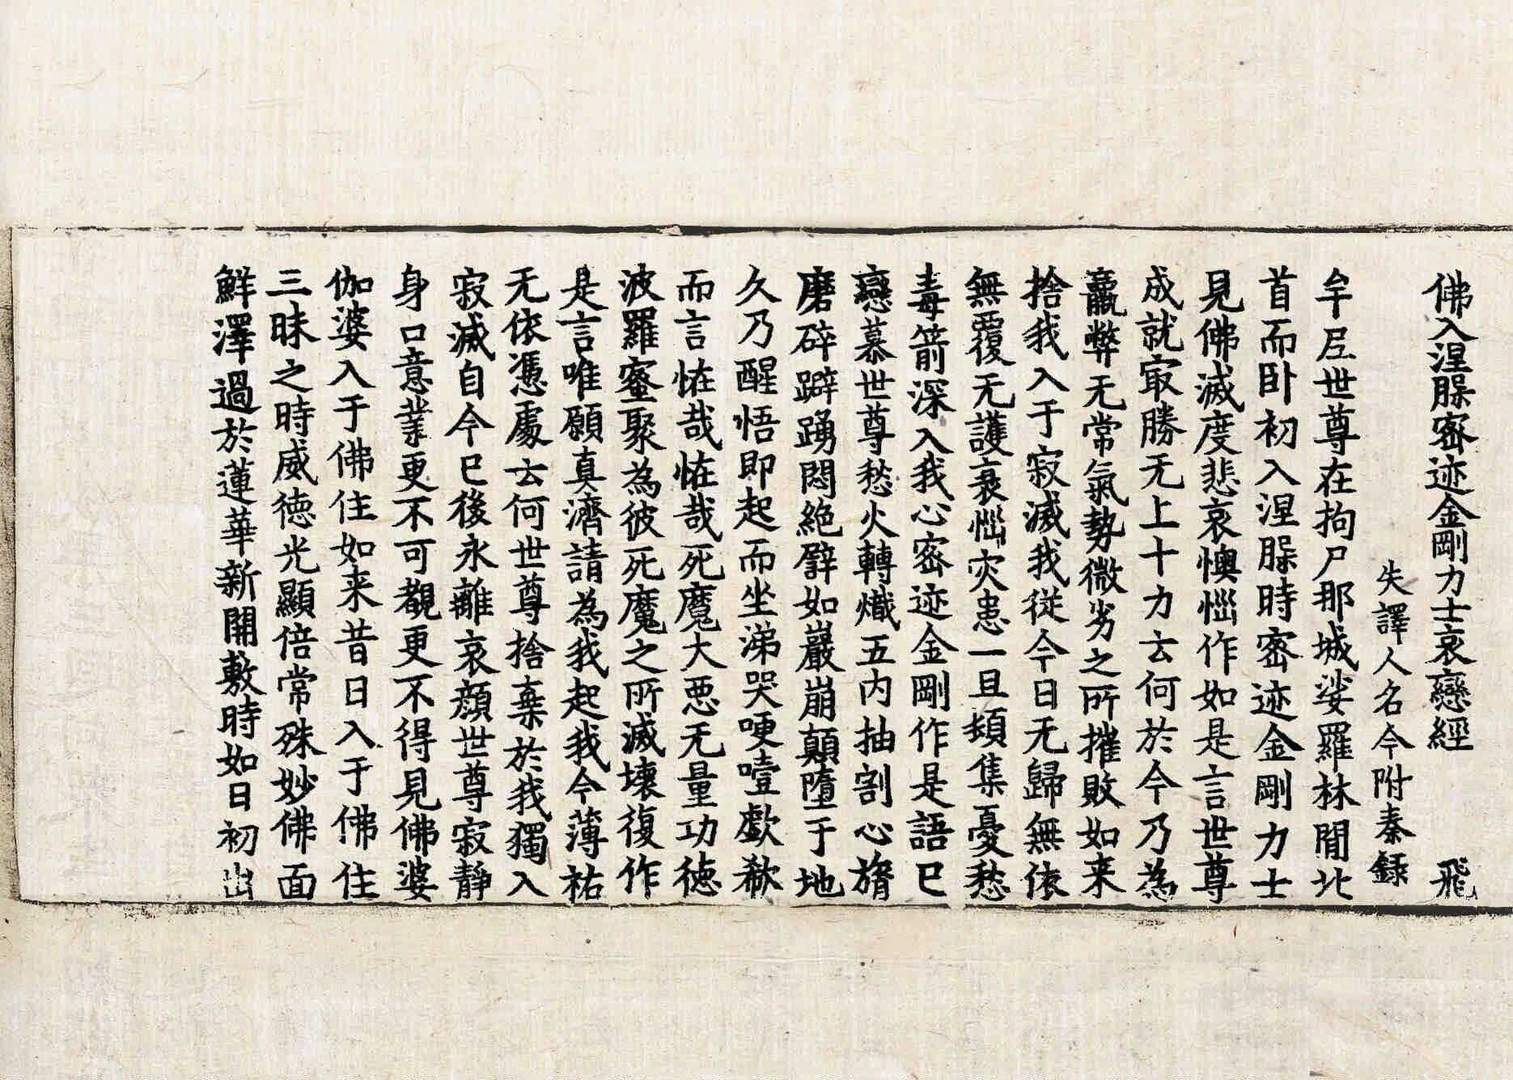 佛入涅槃密迹金剛力士哀戀經 飛
失譯人名今附秦錄
牟尼世尊在拘尸那城娑羅林閒北
首而卧初入涅槃時密迹金剛力士
見佛滅度悲哀懊惱作如是言世尊
成就㝡勝无上十力云何於今乃為
羸弊无常氣勢微劣之所摧敗如来
捨我入于寂滅我從今日无歸無依
無覆无護衰惱灾患一旦頓集憂愁
毒箭深入我心密迹金剛作是語已
戀慕世尊愁火轉熾五內抽割心膂
磨碎躃踴悶絶譬如巖崩顛墮于地
久乃醒悟即起而坐涕哭哽噎歔欷
而言怪哉怪哉死魔大惡无量功德
波羅蜜聚為彼死魔之所滅壞復作
是言唯願真濟請為我起我今薄祐
无依憑處云何世尊捨棄於我獨入
寂滅自今已後永離哀顔世尊寂靜
身口意業更不可覩更不得見佛婆
伽婆入于佛住如来昔日入于佛住
三昧之時威德光顯倍常殊妙佛面
鮮澤過於蓮華新開敷時如日初出